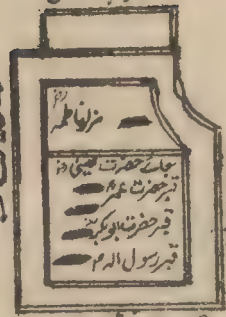 مزار فاطمہؓ
جائے حضرت عیسیٰؑ
قبر حضرت عمرؓ
قبر حضرت ابوبکرؓ
قبر رسول اللہ ﷺ